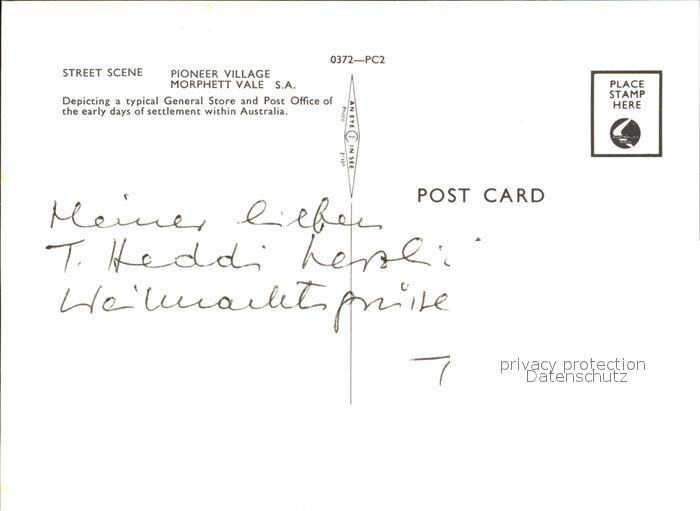 0372—PC2
STREET SCENE PIONEER VILLAGE
MORPHETT VALE S.A.
Depicting a typical General Store and Post Office of
the early days of settlement within Australia.
AN EYE IN SEE
PLACE
STAMP
HERE
POST CARD
Meiner lieben
T. Heddi herzli:
Weihnachtsgrüsse
privacy protection
Datenschutz